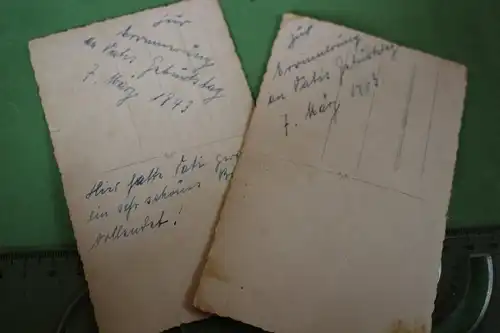 Zur
Erinnerung
an Vatis Geburtstag
7. März 1943
Hier hatte Vati
ein sehr schönes
vollendet!
Zur
Erinnerung
an Vatis Geburtstag
7. März 1943